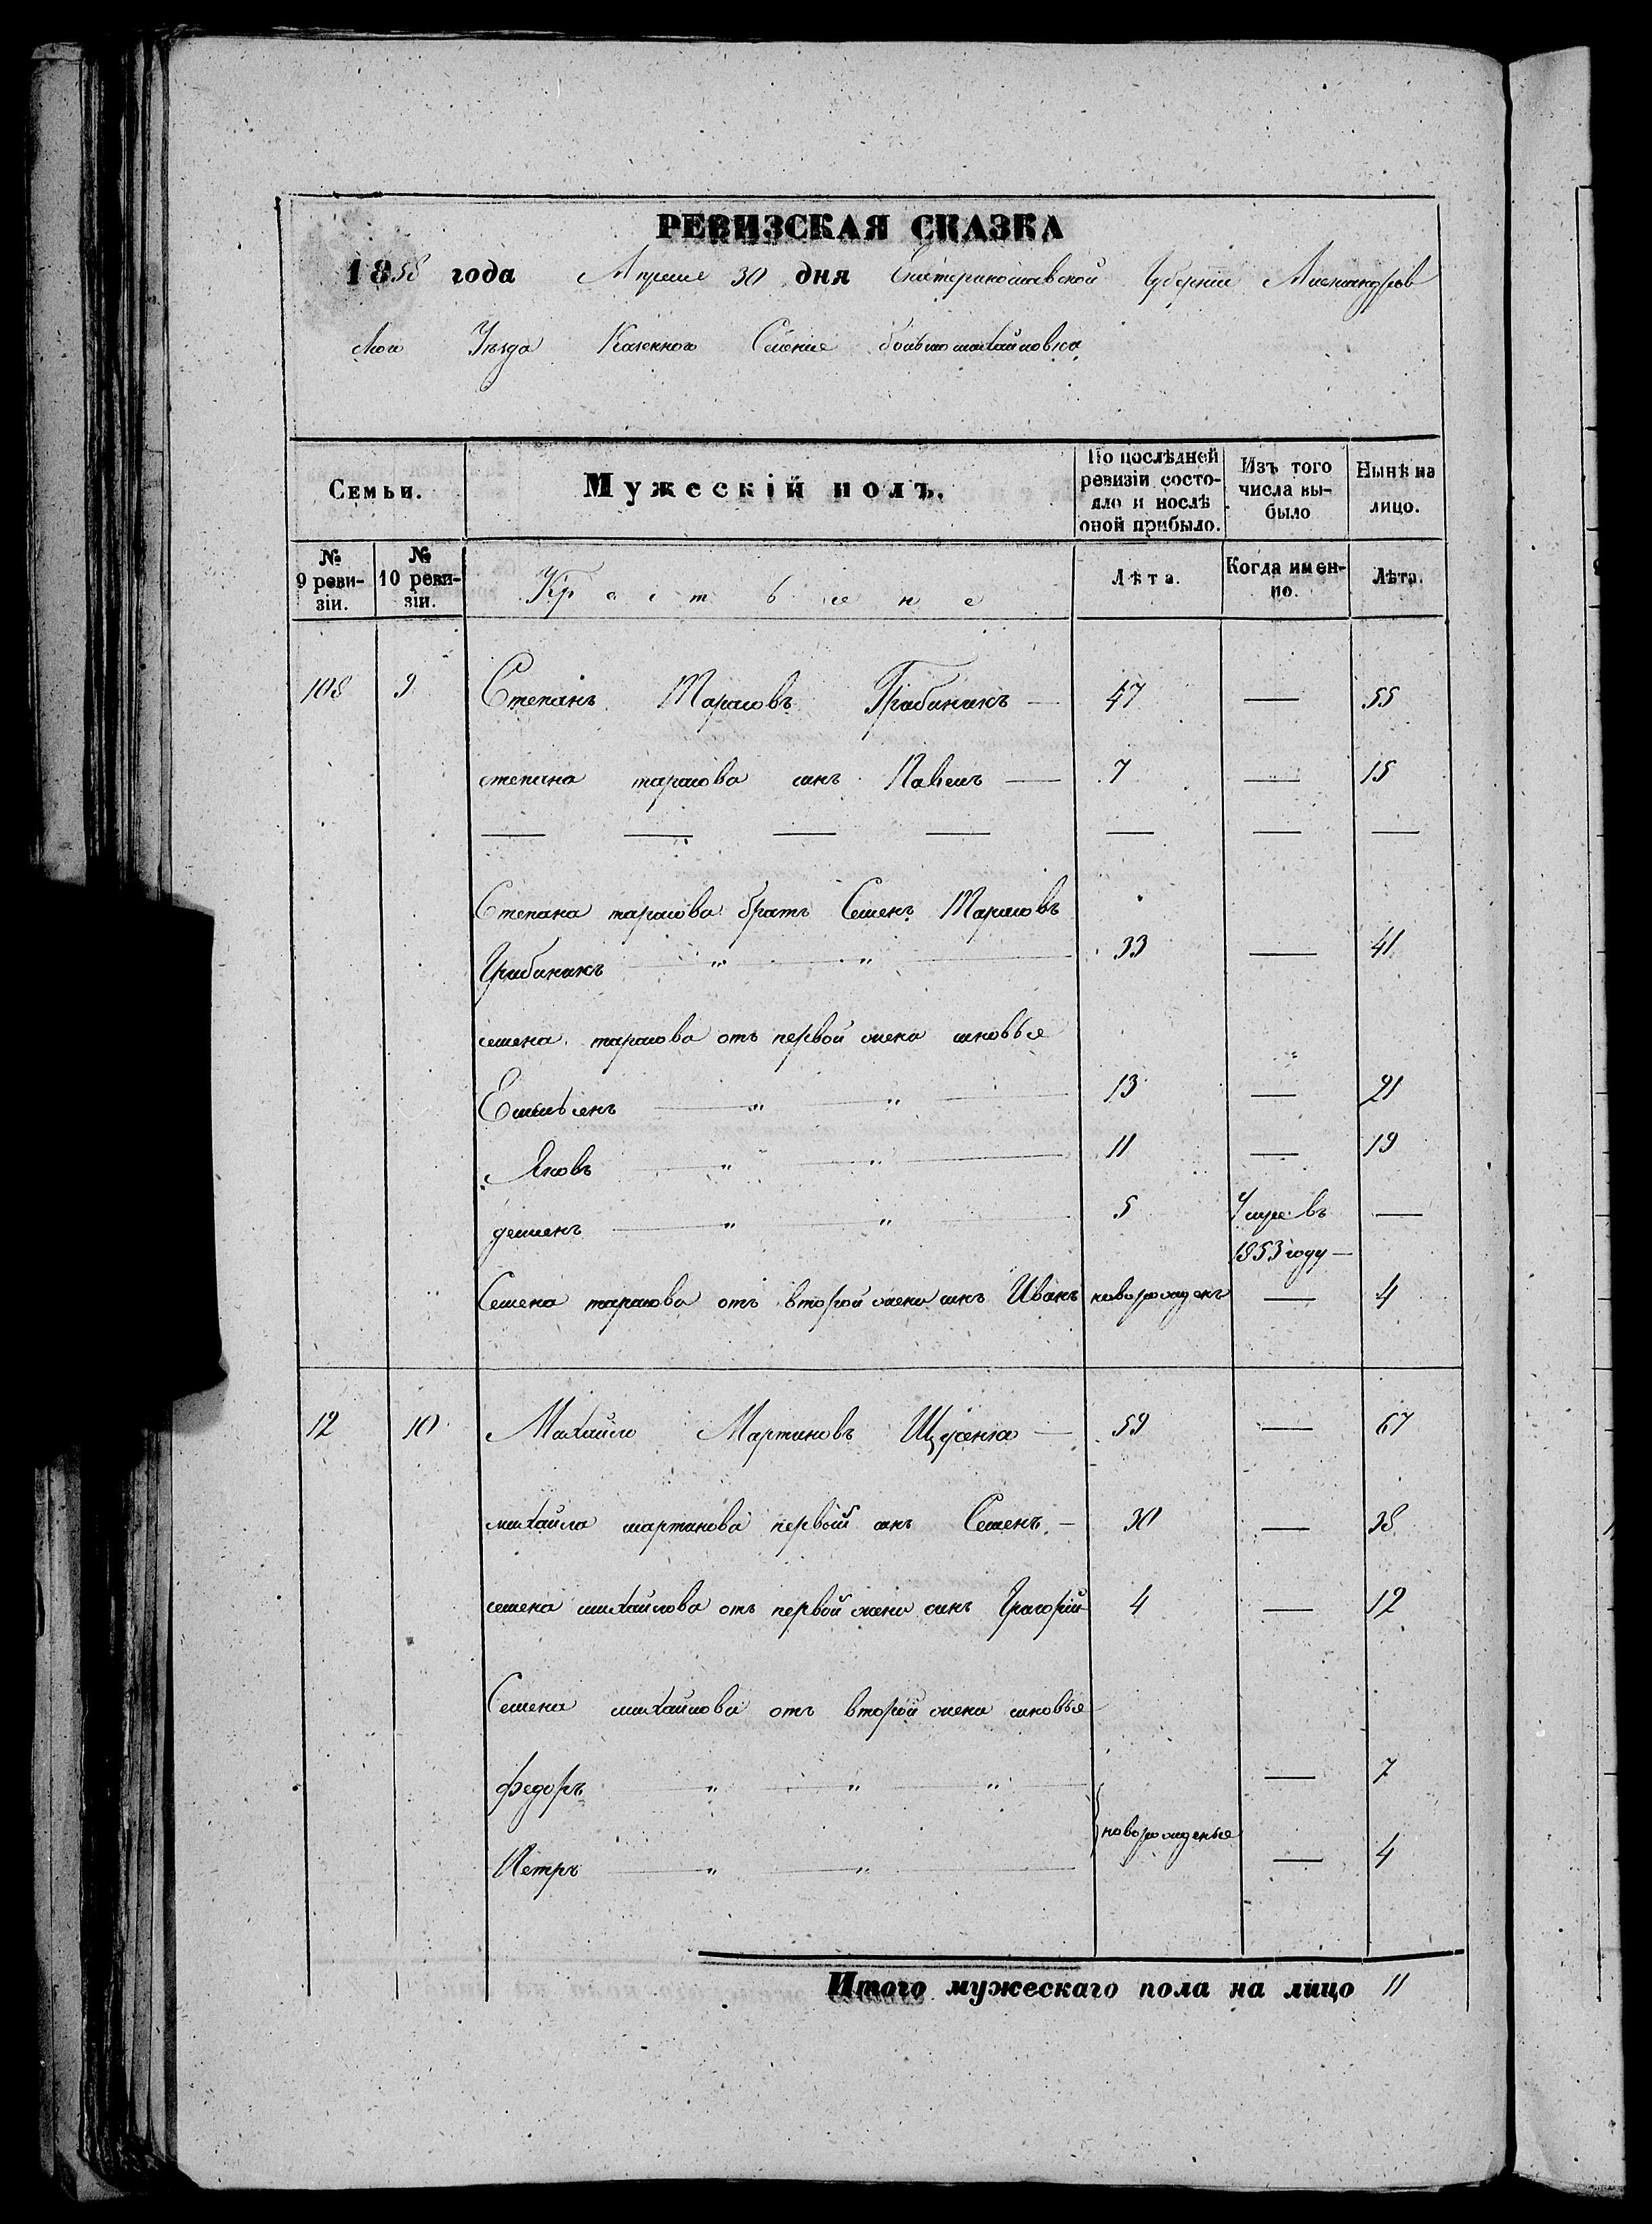 РЕВИЗСКАЯ СКАЗКА
1858 года Апреля 30 дня Екатеринославской Губернии Александров
ского Уѣзда Казенного Селения большемихайловка
Семьи. Мужескій полъ. По послѣдней ревизіи состояло и послѣ оной прибыло. Изъ того числа выбыло Нынѣ на лицо.
№ 9 ревизіи. № 10 ревизіи. Крестьяне Лѣта. Когда именно. Лѣта.
108 9 Степанъ Тарасовъ Грабинакъ — 47 — 55
степана тарасова синъ Павелъ — 7 — 15
— — — — — — —
Степана тарасова братъ Семенъ Тарасовъ
Грабинакъ — " — " — 33 — 41
семена тарасова отъ первой жени синовья
Емельянъ — " — " — 13 — 21
Яковъ — " — " — 11 — 19
демьянъ — " — " — 5 Умре въ —
1853 году —
Семена тарасова отъ второй жени синъ Иванъ новорожденъ — 4
12 10 Михайло Мартиновъ Щусенко — 59 — 67
михайла мартинова первый синъ Семенъ — 30 — 38
семена михайлова отъ первой жени синъ Григорій 4 — 12
Семена михайлова отъ второй жени синовья
федоръ — " — " — " — — 7
новорожденые
Петръ — " — " — — 4
Итого мужескаго пола на лицо 11